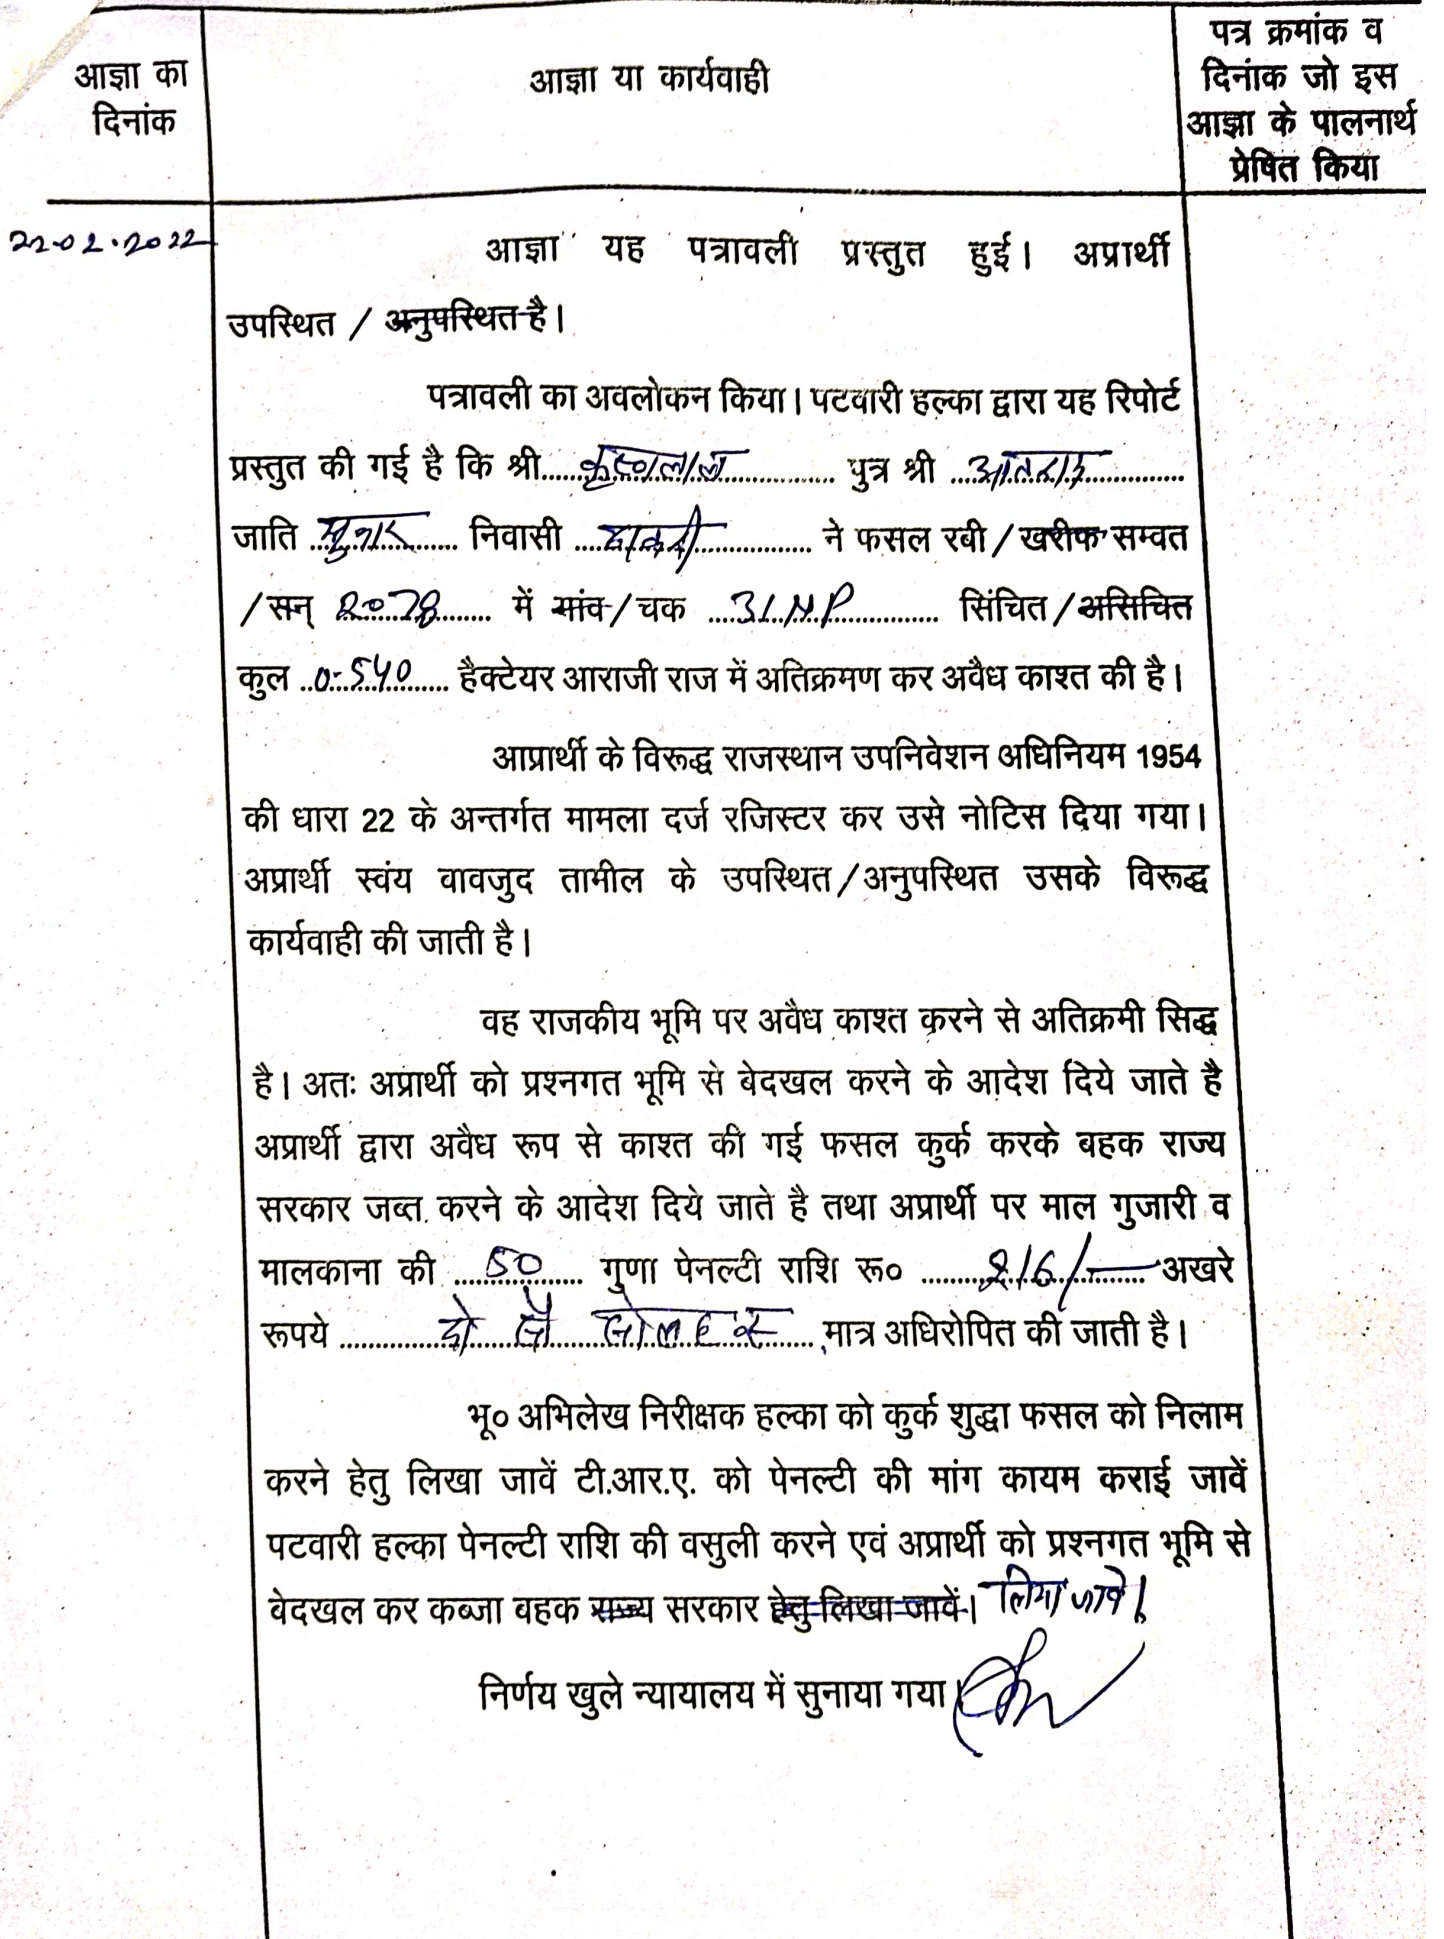 आज्ञा का
दिनांक
आज्ञा या कार्यवाही
पत्र क्रमांक व
दिनांक जो इस
आज्ञा के पालनार्थ
प्रेषित किया
22-02-2022
आज्ञा यह पत्रावली प्रस्तुत हुई। अप्रार्थी
उपस्थित / अनुपस्थित है।
पत्रावली का अवलोकन किया। पटवारी हल्का द्वारा यह रिपोर्ट
प्रस्तुत की गई है कि श्री कृष्णलाल पुत्र श्री
जाति निवासी ने फसल रबी / खरीफ सम्वत
/ सन् 2078 में गांव / चक 3LNP सिंचित / असिचित
कुल 0-540 हैक्टेयर आराजी राज में अतिक्रमण कर अवैध काश्त की है।
आप्रार्थी के विरूद्ध राजस्थान उपनिवेशन अधिनियम 1954
की धारा 22 के अन्तर्गत मामला दर्ज रजिस्टर कर उसे नोटिस दिया गया।
अप्रार्थी स्वंय वावजुद तामील के उपस्थित / अनुपस्थित उसके विरूद्ध
कार्यवाही की जाती है।
वह राजकीय भूमि पर अवैध काश्त करने से अतिक्रमी सिद्ध
है। अतः अप्रार्थी को प्रश्नगत भूमि से बेदखल करने के आदेश दिये जाते है
अप्रार्थी द्वारा अवैध रूप से काश्त की गई फसल कुर्क करके बहक राज्य
सरकार जब्त करने के आदेश दिये जाते है तथा अप्रार्थी पर माल गुजारी व
मालकाना की 50 गुणा पेनल्टी राशि रू० 216/- अखरे
रूपये दो सौ सोलह रू मात्र अधिरोपित की जाती है।
भू० अभिलेख निरीक्षक हल्का को कुर्क शुद्धा फसल को निलाम
करने हेतु लिखा जावें टी.आर.ए. को पेनल्टी की मांग कायम कराई जावें
पटवारी हल्का पेनल्टी राशि की वसुली करने एवं अप्रार्थी को प्रश्नगत भूमि से
बेदखल कर कब्जा वहक राज्य सरकार हेतु लिखा जावें। लिया जावे।
निर्णय खुले न्यायालय में सुनाया गया।